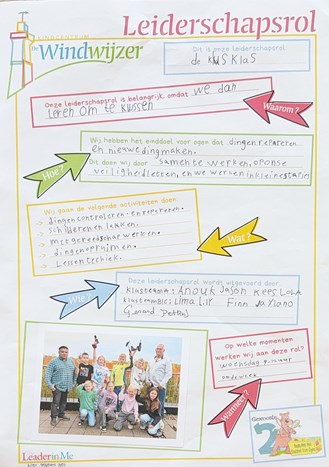 Leiderschapsrol
KINDCENTRUM
De Windwijzer
Dit is onze leiderschapsrol:
de klusklas
Onze leiderschapsrol is belangrijk, omdat we dan
leren om te klussen
Waarom?
Wij hebben het einddoel voor ogen dat dingen repareren
en nieuwe ding maken.
Dit doen wij door samen te werken, op onse
veiligheid letten, en we werken in kleine stapjes
Hoe?
Wij gaan de volgende activiteiten doen
dingen controleren en repareren.
schilderen en lakken.
met gereedschap werken.
dingen opruimen.
Lessen techiek.
Wat?
Deze leiderschapsrol wordt uitgevoerd door:
Anouk Jason Kees
Lima Lily Finn
Gerard
Wie?
Op welke momenten
werken wij aan deze rol?
woensdag
Wanneer?
Gewoonte
2
Leader in Me